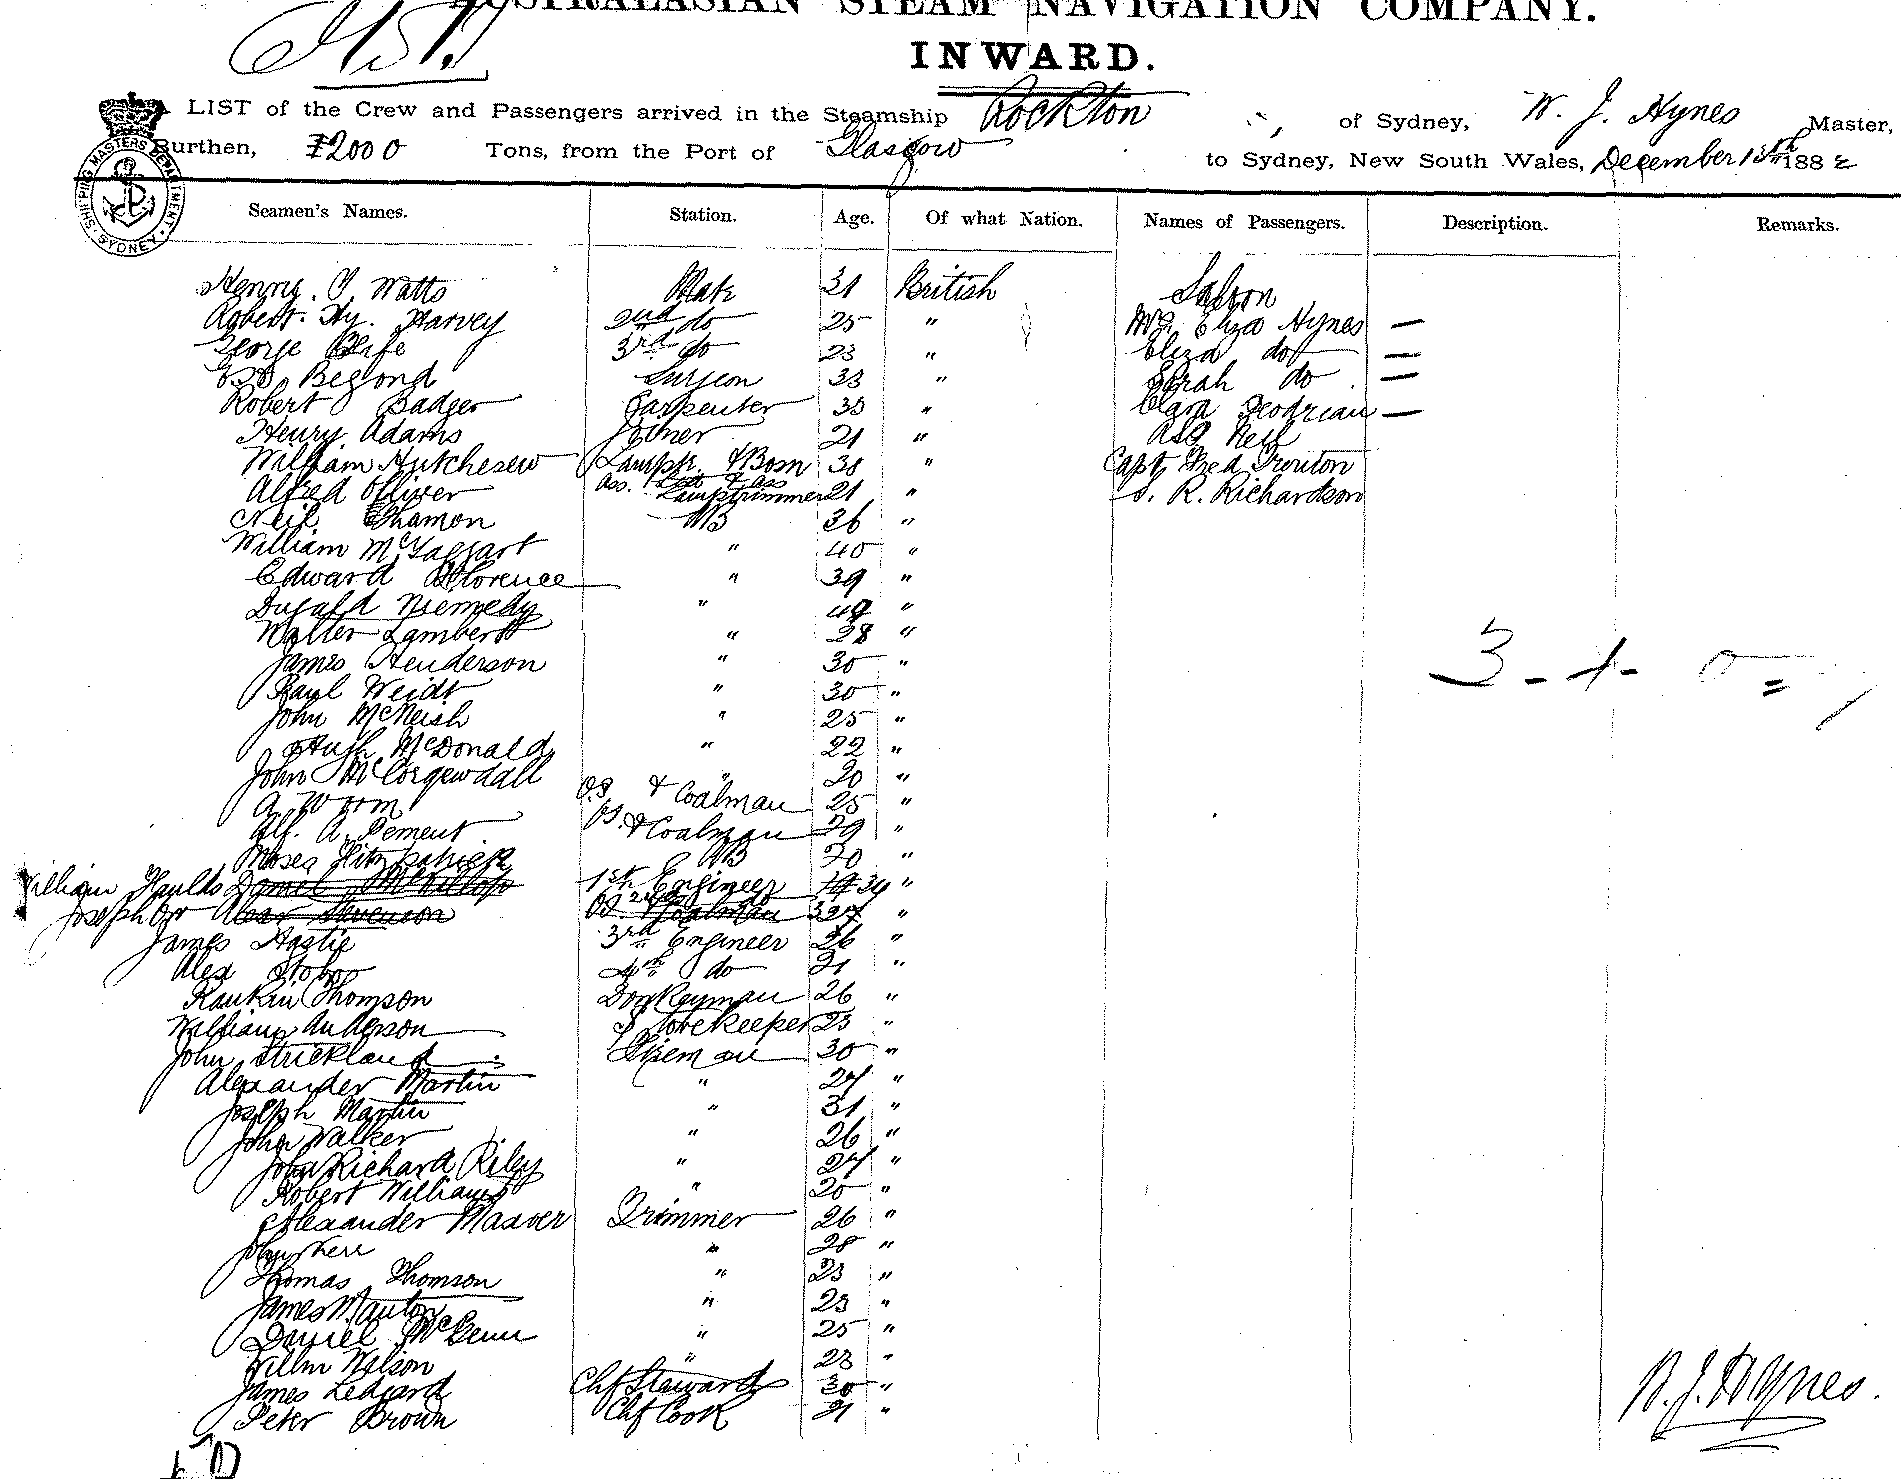 AUSTRALASIAN STEAM NAVIGATION COMPANY.
INWARD.
A LIST of the Crew and Passengers arrived in the Steamship Rockton of Sydney, W. J. Hynes Master,
Burthen, 2000 Tons, from the Port of Glasgow to Sydney, New South Wales, December 13th 1882
SHIPPING MASTERS DEPARTMENT SYDNEY
Seamen's Names. Station. Age. Of what Nation. Names of Passengers. Description. Remarks.
Henry Watts Mate 31 British Saloon
Robert Hy. Harvey 2nd do 25 " Mrs Eliza Hynes —
George 3rd do 23 " Eliza do —
Begond Surgeon 33 " Sarah do —
Robert Badger Carpenter 35 " Clara —
Henry Adams Joiner 21 " Neil
William Hutcheson Lampr. & Bosn 38 " Capt Fred Trouton
Alfred Olliver Ass. Lamptrimmer 21 " R. Richardson
Neil Thamon AB 36 "
William McTaggart " 40 "
Edward Florence " 39 "
Dugald Kennedy " 49 "
Walter Lambert " 28 "
James Henderson " 30 "
Paul Weidt " 30 "
John McNeish " 25 "
Hugh McDonald " 22 "
John " 20 "
A. Worm OS & Coalman 25 "
Alf. A. Pement OS. & Coalman 29 "
Moses Fitzpatrick AB 20 "
William 1st Engineer 34 "
Joseph Orr 2nd 27 "
James Hastie 3rd Engineer 26 "
Alex Stobo 4th do 21 "
Rankin Thomson Donkeyman 26 "
William Anderson Storekeeper 23 "
John Strickland Fireman 30 "
Alexander Martin " 27 "
Joseph Martin " 31 "
John Walker " 26 "
John Richard Riley " 27 "
Robert Williams " 20 "
Alexander Maaver Trimmer 26 "
John Kerr " 28 "
Thomas Thomson " 23 "
James Manton " 23 "
Daniel " 25 "
Willm Nelson " 23 "
James Ledgard Chf Steward 30 "
Peter Brown Chf Cook 21 "
W. J. Hynes.